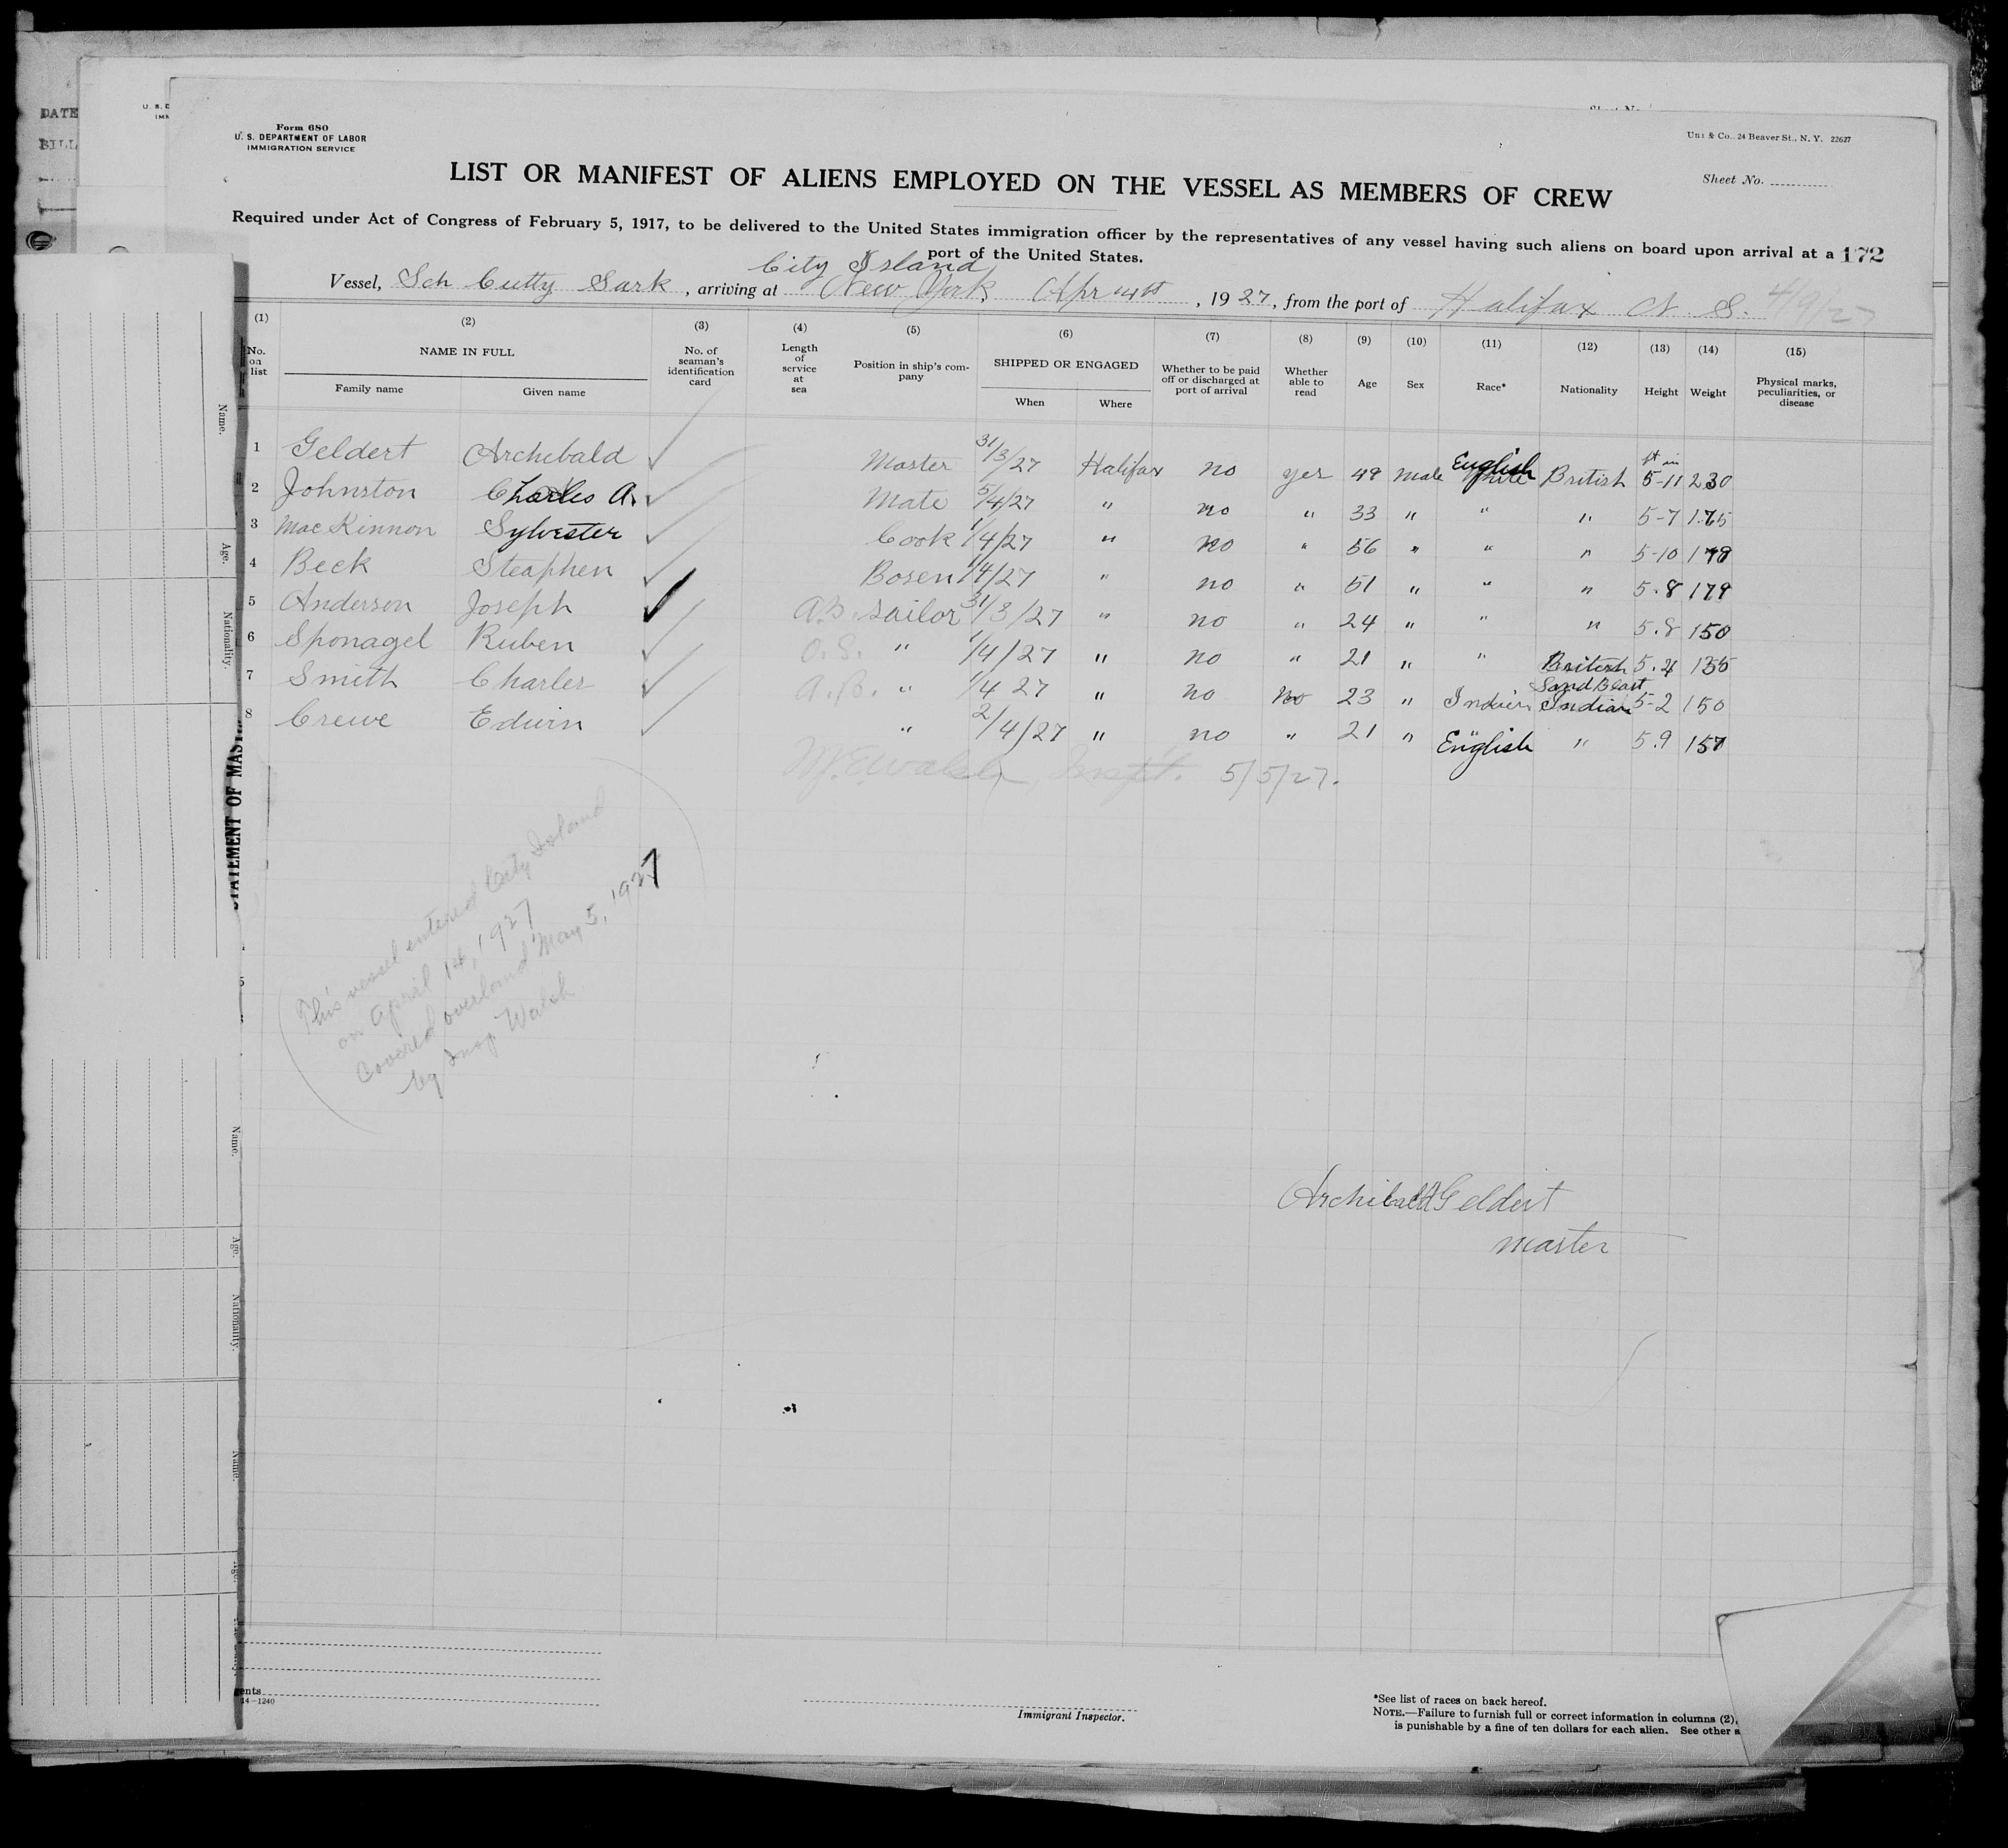 DATE
BILL
U. S. D
IMM
Sheet No.
Form 680
U. S. DEPARTMENT OF LABOR
IMMIGRATION SERVICE
& Co., 24 Beaver St., N. Y. 22627
Sheet No.
LIST OR MANIFEST OF ALIENS EMPLOYED ON THE VESSEL AS MEMBERS OF CREW
Required under Act of Congress of February 5, 1917, to be delivered to the United States immigration officer by the representatives of any vessel having such aliens on board upon arrival at a
port of the United States.
172
City Island
Vessel, Sch Cutty Sark, arriving at New York Apr 14th, 1927, from the port of Halifax N. S.
(1) (2) (3) (4) (5) (6) (7) (8) (9) (10) (11) (12) (13) (14) (15)
No. on list NAME IN FULL Family name Given name No. of seaman's identification card Length of service at sea Position in ship's company SHIPPED OR ENGAGED When Where Whether to be paid off or discharged at port of arrival Whether able to read Age Sex Race* Nationality Height Weight Physical marks, peculiarities, or disease
ft in
1 Geldert Archebald Master 31/3/27 Halifax no yes 49 Male English White British 5-11 230
2 Johnston Charles A. Mate 5/4/27 " no " 33 " " " 5-7 175
3 MacKinnon Sylvester Cook 1/4/27 " no " 56 " " " 5-10
4 Beck Steaphen Bosen 1/4/27 " no " 51 " " " 5.8 179
5 Anderson Joseph A.B. Sailor 31/3/27 " no " 24 " " " 5.8 150
6 Sponagel Ruben O.S. " 1/4/27 " no " 21 " " British 5.4 135
7 Smith Charles A.B. " 1/4 27 " no No 23 " Indian Indian 5-2 150
8 Crewe Edwin " 2/4/27 " no " 21 " English " 5.9 157
M. E. Walsh Inspt. 5/5/27.
This vessel entered City Island
on April 14, 1927
Covered overland May 5, 1927
by Insp Walsh
Archibald Geldert
master
Name.
Age.
Nationality.
STATEMENT OF MAST
Name.
Age.
Nationality.
Name.
Age.
ents
14—1240
Immigrant Inspector.
*See list of races on back hereof.
NOTE.—Failure to furnish full or correct information in columns (2),
is punishable by a fine of ten dollars for each alien. See other s